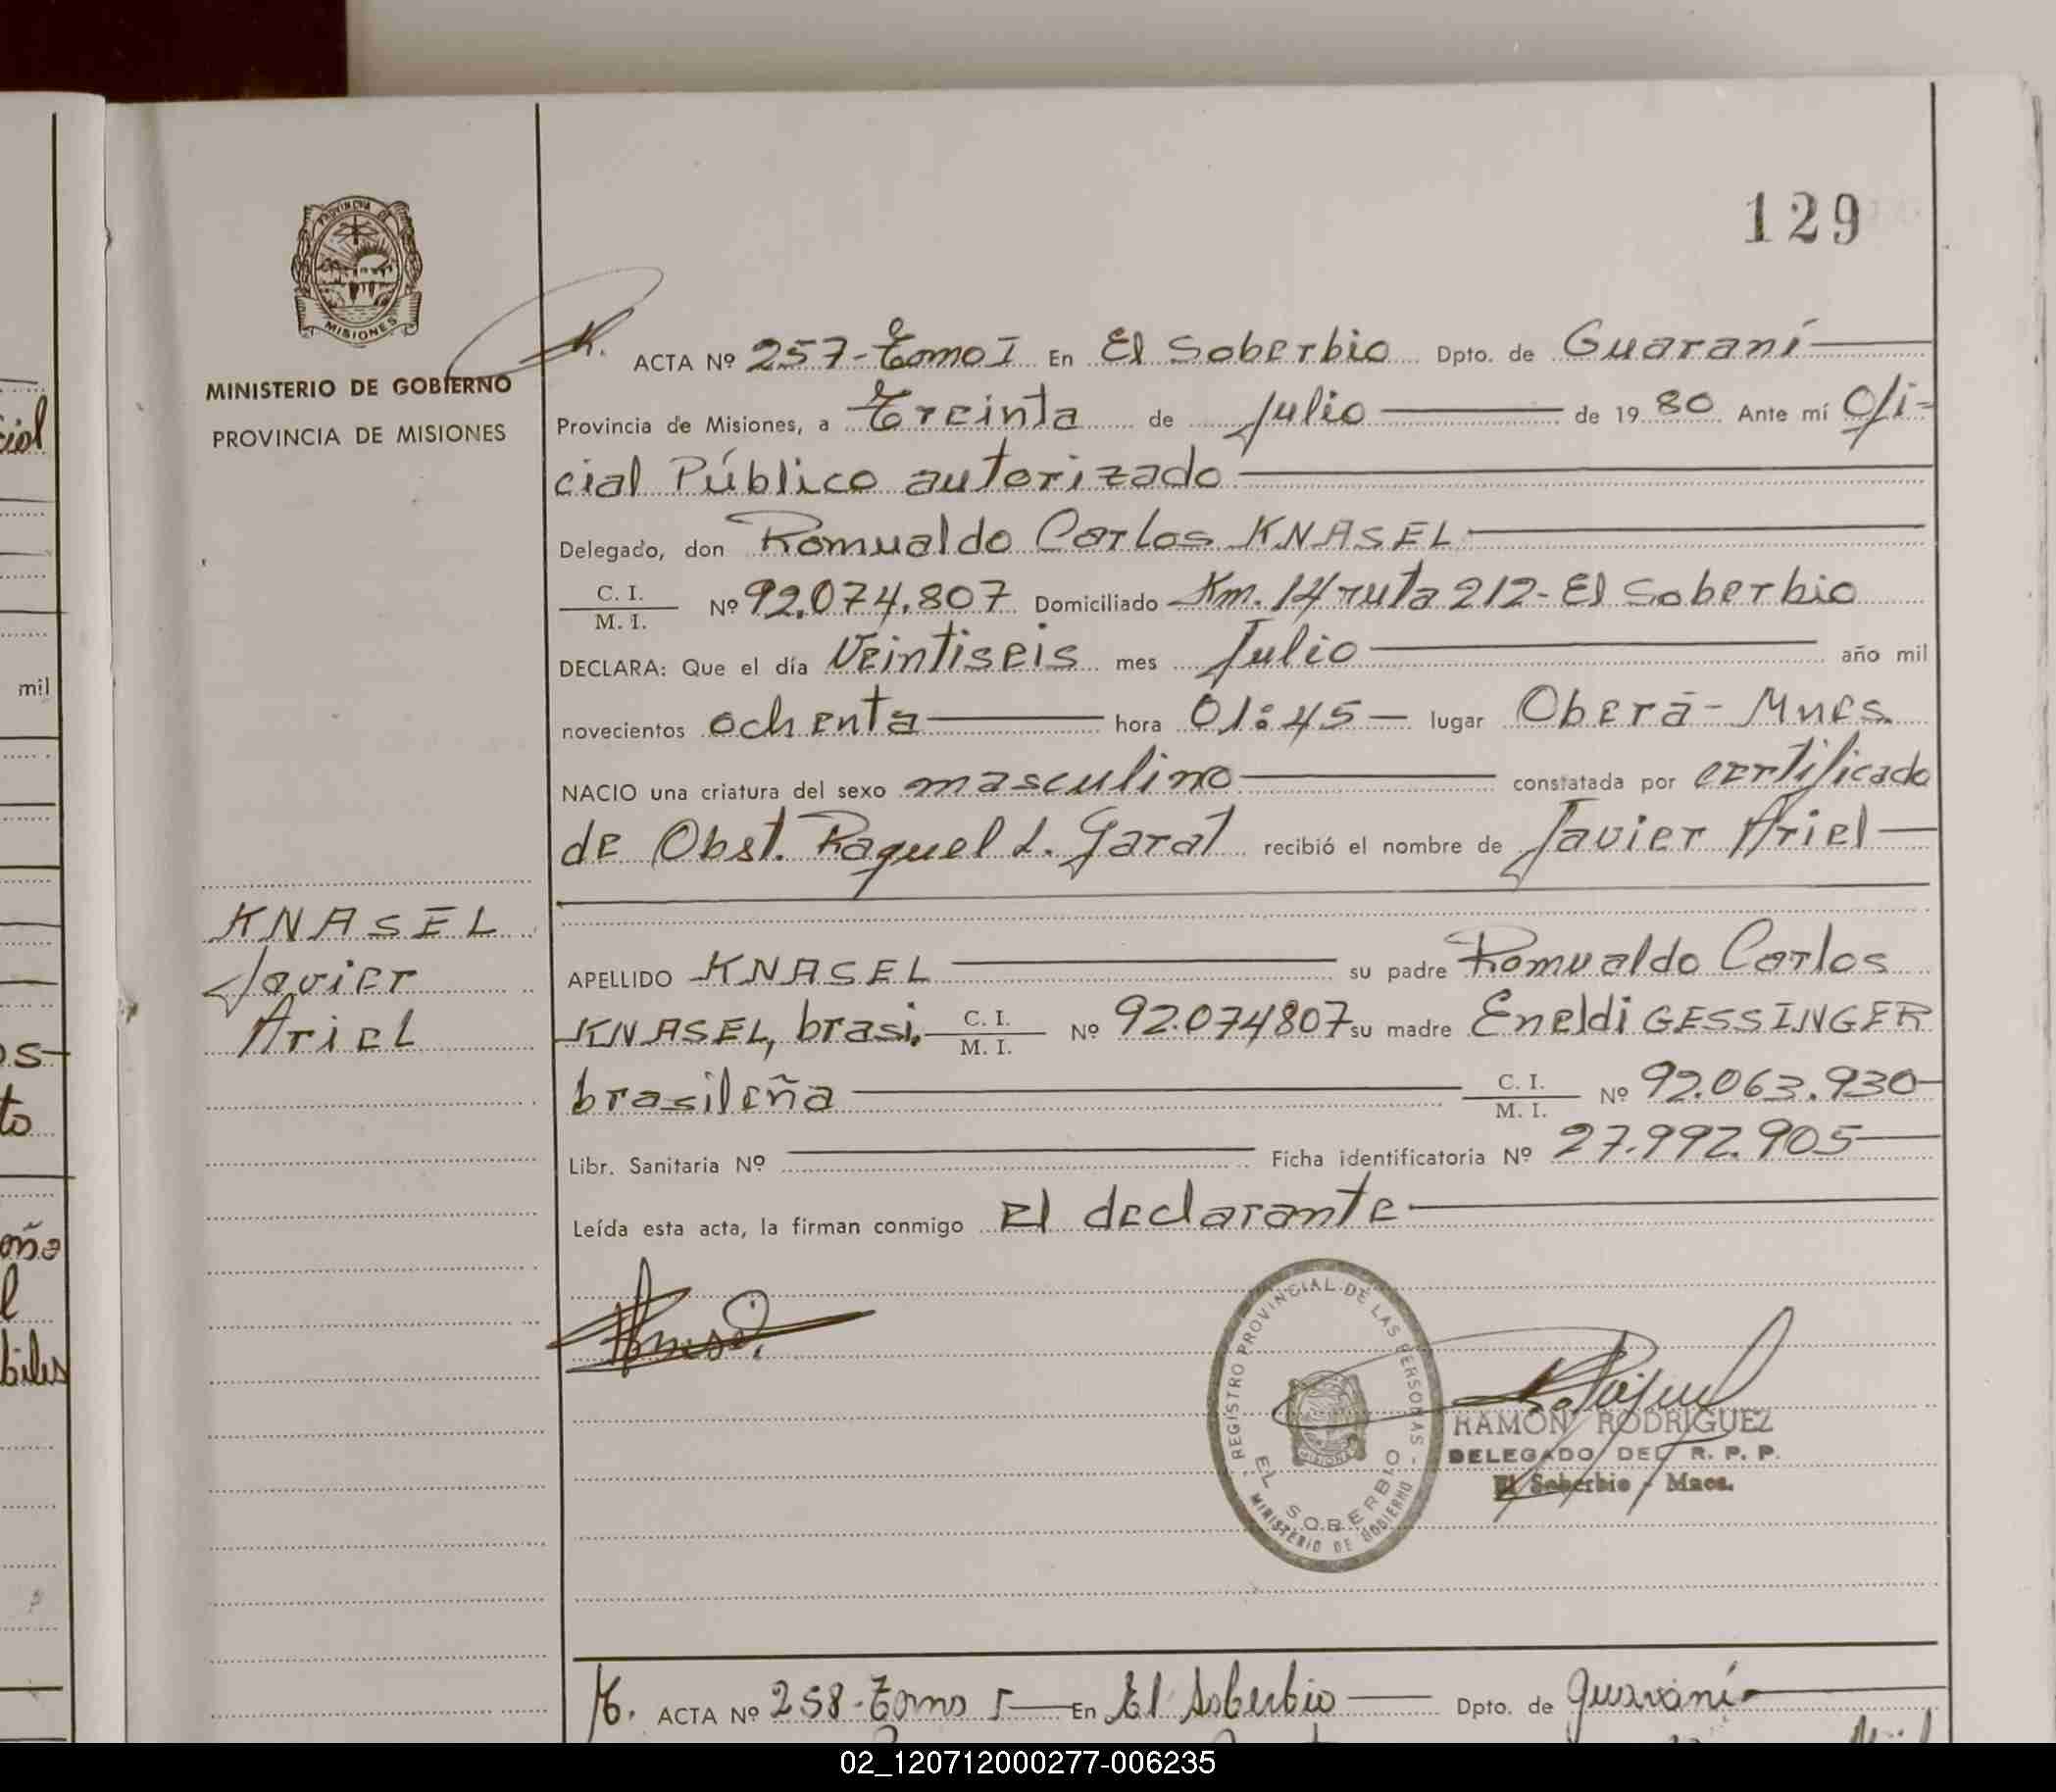 129
PROVINCIA DE
MISIONES
MINISTERIO DE GOBIERNO
PROVINCIA DE MISIONES
ACTA Nº 257-Tomo I En El Soberbio Dpto. de Guaraní
Provincia de Misiones, a Treinta de Julio de 1980 Ante mí Ofi-
cial Público autorizado
Delegado, don Romualdo Carlos KNASEL
C. I.
M. I. Nº 92.074.807 Domiciliado Km. 14 ruta 212-El Soberbio
DECLARA: Que el día Veintiseis mes Julio año mil
novecientos ochenta hora 01:45 lugar Oberá-Mnes.
NACIO una criatura del sexo masculino constatada por certificado
de Obst. Raquel L. Garat recibió el nombre de Javier Ariel
KNASEL
Javier
Ariel
APELLIDO KNASEL su padre Romualdo Carlos
KNASEL, brasi. C. I. M. I. Nº 92.074807 su madre Eneldi GESSINGER
brasileña C. I. M. I. Nº 92.063.930
Libr. Sanitaria Nº Ficha identificatoria Nº 27.992.905
Leída esta acta, la firman conmigo el declarante
REGISTRO PROVINCIAL DE LAS PERSONAS
EL SOBERBIO
MINISTERIO DE GOBIERNO
MISIONES
RAMON RODRIGUEZ
DELEGADO DEL R. P. P.
El Soberbio - Mnes.
ACTA Nº 258-Tomo I En El Soberbio Dpto. de Guaraní
cial
mil
os
to
eña
l
biles
02_120712000277-006235